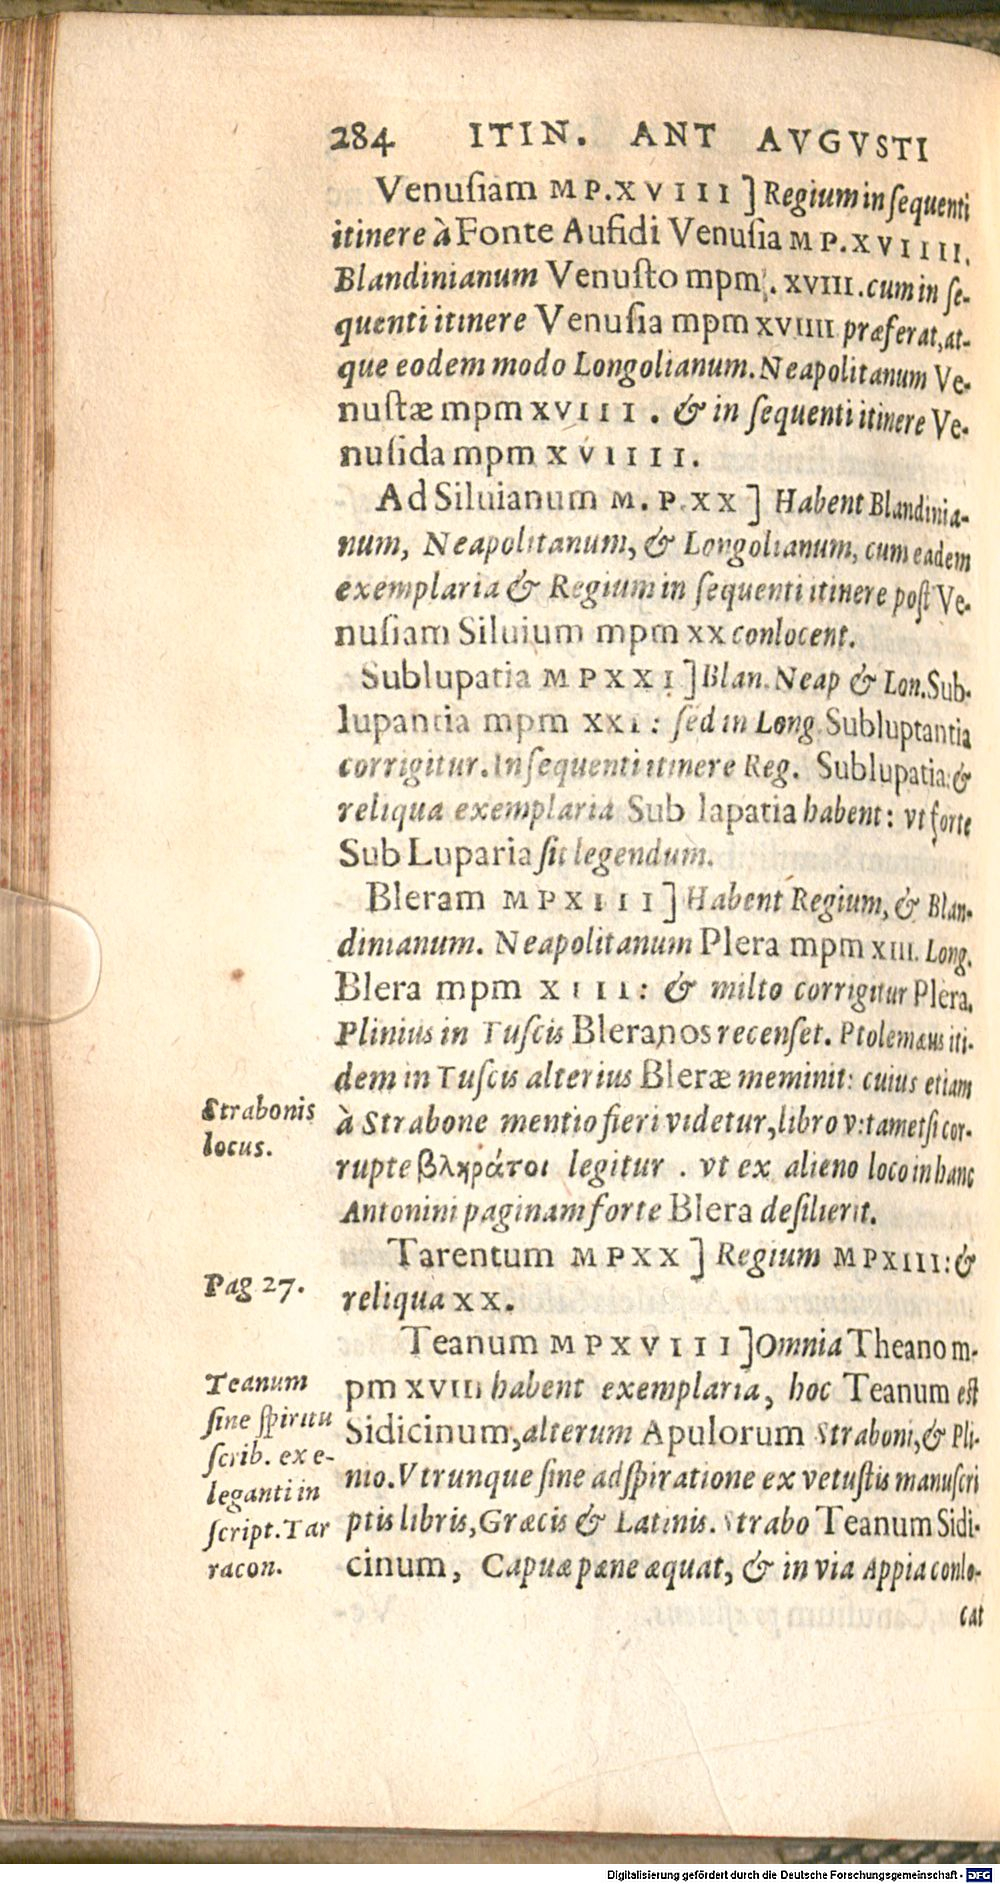 284 ITIN. ANT AVGVSTI
Venuſiam MP.XVIII] Regium in ſequenti
itinere à Fonte Aufidi Venuſia MP.XVIIII.
Blandinianum Venuſto mpm. XVIII. cum in ſe-
quenti itinere Venuſia mpm XVIIII præferat, at-
que eodem modo Longolianum. Neapolitanum Ve-
nuſtæ mpm XVIII. & in ſequenti itinere Ve-
nuſida mpm XVIIII.
Ad Siluianum M.P.XX] Habent Blandinia-
num, Neapolitanum, & Longolianum, cum eadem
exemplaria & Regium in ſequenti itinere poſt Ve-
nuſiam Siluium mpm xx conlocent.
Sublupatia MPXXI] Blan. Neap & Lon. Sub-
lupantia mpm XXI: ſed in Long. Subluptantia
corrigitur. In ſequenti itinere Reg. Sublupatia: &
reliqua exemplaria Sub lapatia habent: vt forte
Sub Luparia ſit legendum.
Bleram MPXIII] Habent Regium, & Blan-
dinianum. Neapolitanum Plera mpm XIII. Long.
Blera mpm XIII: & milto corrigitur Plera.
Plinius in Tuſcis Bleranos recenſet. Ptolemæus iti-
dem in Tuſcis alterius Bleræ meminit: cuius etiam
Strabonis
locus.
à Strabone mentio fieri videtur, libro v: tametſi cor-
rupte βλκράτοι legitur. vt ex alieno loco in hanc
Antonini paginam forte Blera deſilierit.
Tarentum MPXX] Regium MPXIII: &
Pag 27.
reliqua XX.
Teanum MPXVIII] Omnia Theano m-
Teanum
ſine ſpiritu
ſcrib. ex e-
leganti in
ſcript. Tar
racon.
pm XVIII habent exemplaria, hoc Teanum eſt
Sidicinum, alterum Apulorum Straboni, & Pli-
nio. Vtrunque ſine adſpiratione ex vetuſtis manuſcri
ptis libris, Græcis & Latinis. Strabo Teanum Sidi-
cinum, Capuæ pæne æquat, & in via Appia conlo-
cat
Digitalisierung gefördert durch die Deutsche Forschungsgemeinschaft - DFG